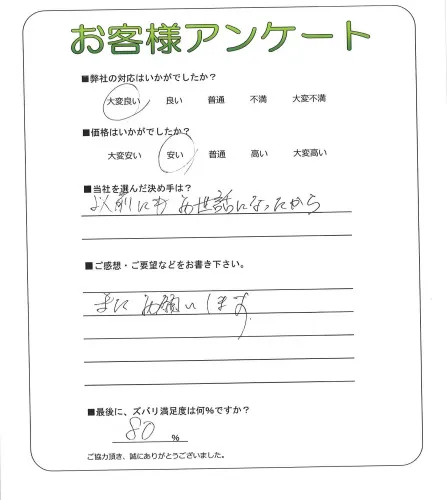 お客様アンケート
■弊社の対応はいかがでしたか？
大変良い 良い 普通 不満 大変不満
■価格はいかがでしたか？
大変安い 安い 普通 高い 大変高い
■当社を選んだ決め手は？
以前にもお世話になったから
■ご感想・ご要望などをお書き下さい。
またお願いします
■最後に、ズバリ満足度は何%ですか？
80 %
ご協力頂き、誠にありがとうございました。